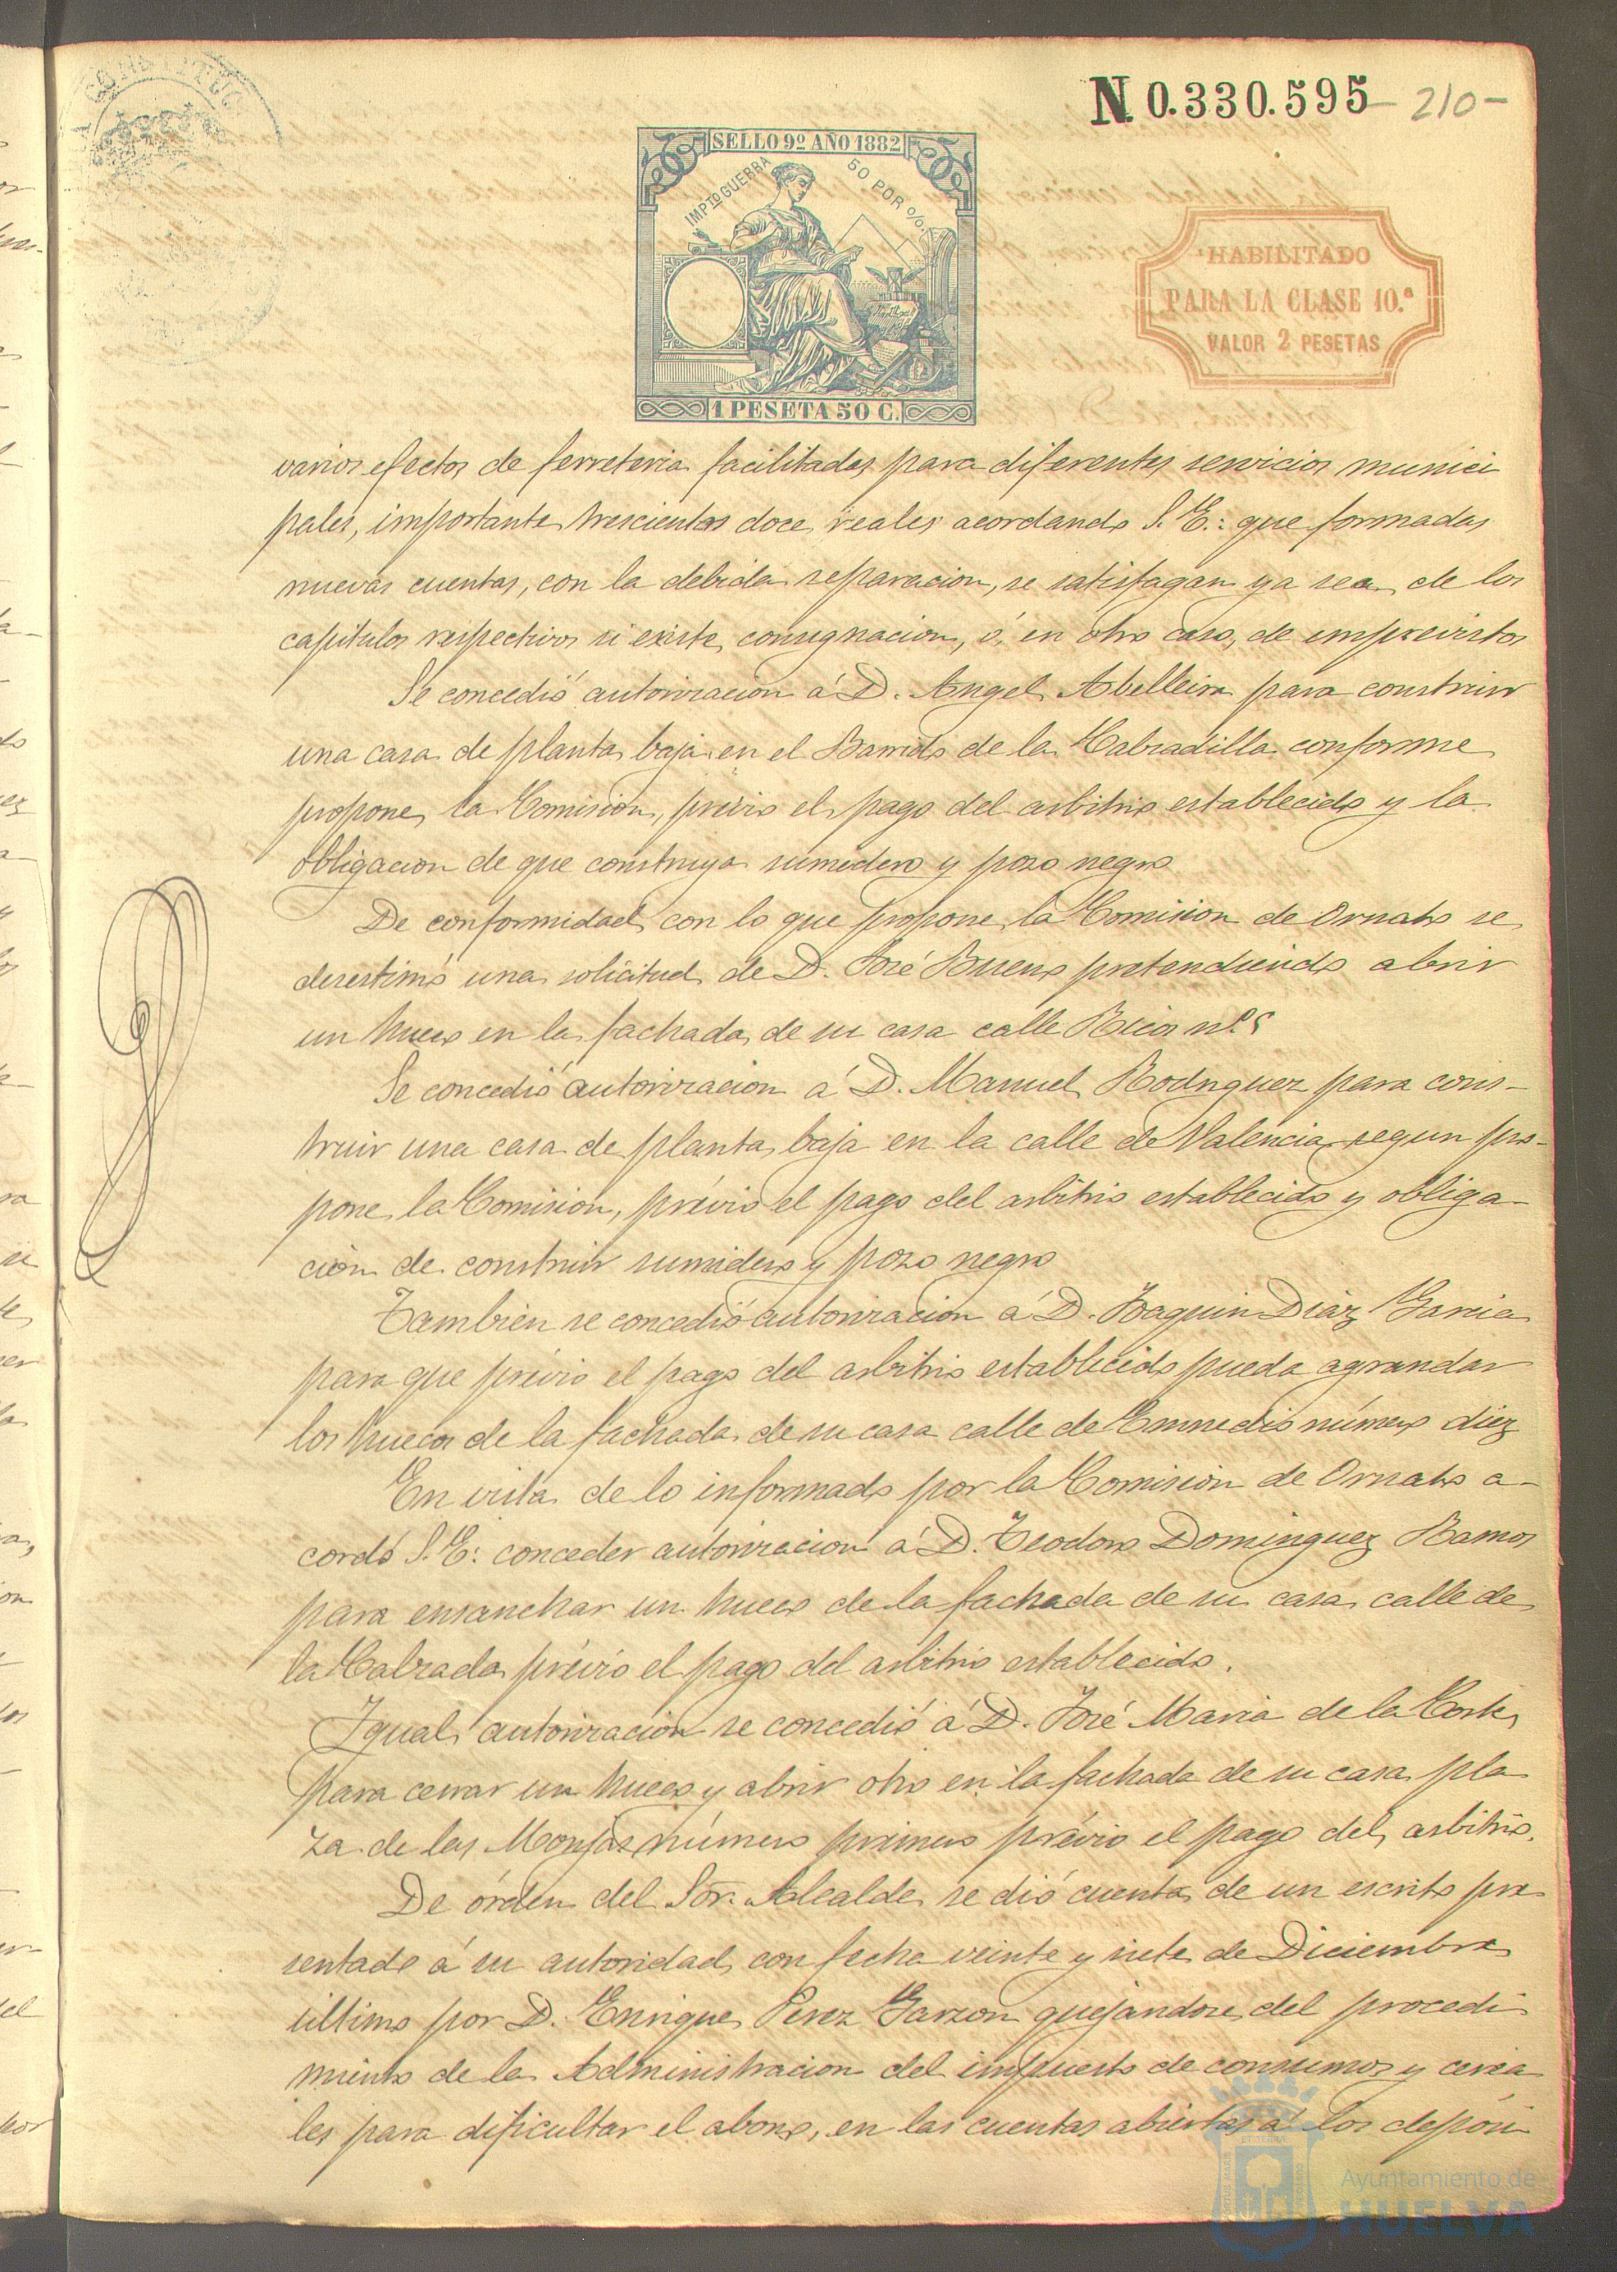 CONSTITUC
N 0.330.595 - 210 -
SELLO 9º AÑO 1882
IMPTO GUERRA 50 POR %
1 PESETA 50 C.
HABILITADO
PARA LA CLASE 10.ª
VALOR 2 PESETAS
varios efectos de ferreteria facilitados para diferentes servicios munici
pales, importante trescientos doce reales acordando S. E.: que formadas
nuevas cuentas, con la debida separacion, se satisfagan ya sea de los
capitulos respectivos si existe consignacion, ó, en otro caso, de imprevistos
Se concedió autorizacion á D. Angel Abelleira para construir
una casa de planta baja en el Barrido de la Calzadilla conforme
propone la Comision, prévio el pago del arbitrio establecido y la
obligacion de que construya sumidero y pozo negro
De conformidad con lo que propone la Comision de Ornato se
desestimó una solicitud de D. José Bueno pretendiendo abrir
un hueco en la fachada de su casa calle Ricos nº 5
Se concedió autorizacion á D. Manuel Rodriguez para cons-
truir una casa de planta baja en la calle de Valencia segun pro-
pone la Comision, prévio el pago del arbitrio establecido y obliga-
ción de construir sumidero y pozo negro
Tambien se concedió autorizacion á D. Joaquin Diaz Garcia
para que prévio el pago del arbitrio establecido pueda agrandar
los huecos de la fachada de su casa calle de Enmedio número diez
En vista de lo informado por la Comision de Ornato a-
cordó S. E: conceder autorizacion á D. Teodoro Dominguez Ramos
para ensanchar un hueco de la fachada de su casa calle de
la Calzada prévio el pago del arbitrio establecido.
Igual autorizacion se concedió á D. José Maria de la Corte
para cerrar un hueco y abrir otro en la fachada de su casa pla
za de las Monjas número primero prévio el pago del arbitrio.
De órden del Sor. Alcalde se dió cuenta de un escrito pre
sentado á su autoridad con fecha veinte y siete de Diciembre
último por D. Enrique Perez Garzon quejándose del procedi
miento de la Administracion del impuesto de consumos y cerea
les para dificultar el abono, en las cuentas abiertas á los depósi
Ayuntamiento de
HUELVA